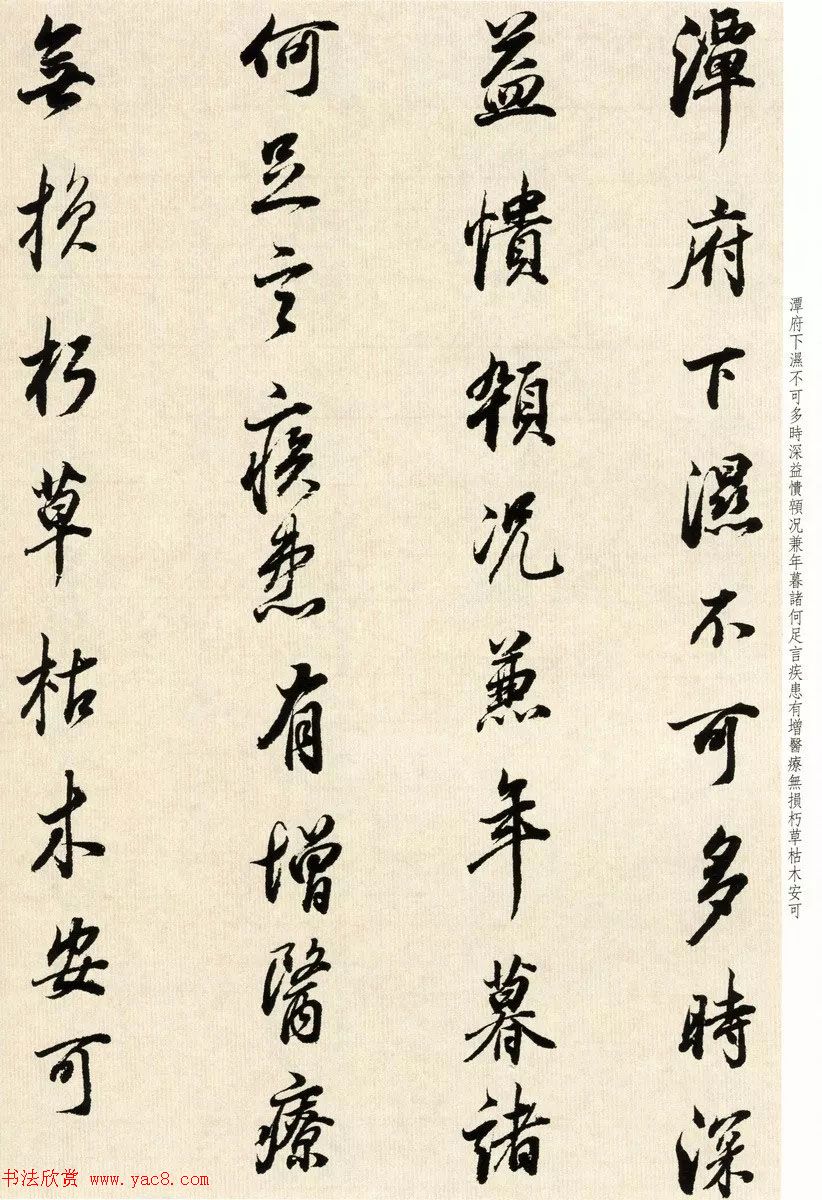 潭府下濕不可多時深
益憒頓况兼年暮諸
何足言疾患有增醫療
無損朽草枯木安可
潭府下濕不可多時深益憒頓况兼年暮諸何足言疾患有增醫療無損朽草枯木安可
书法欣赏 www.yac8.com